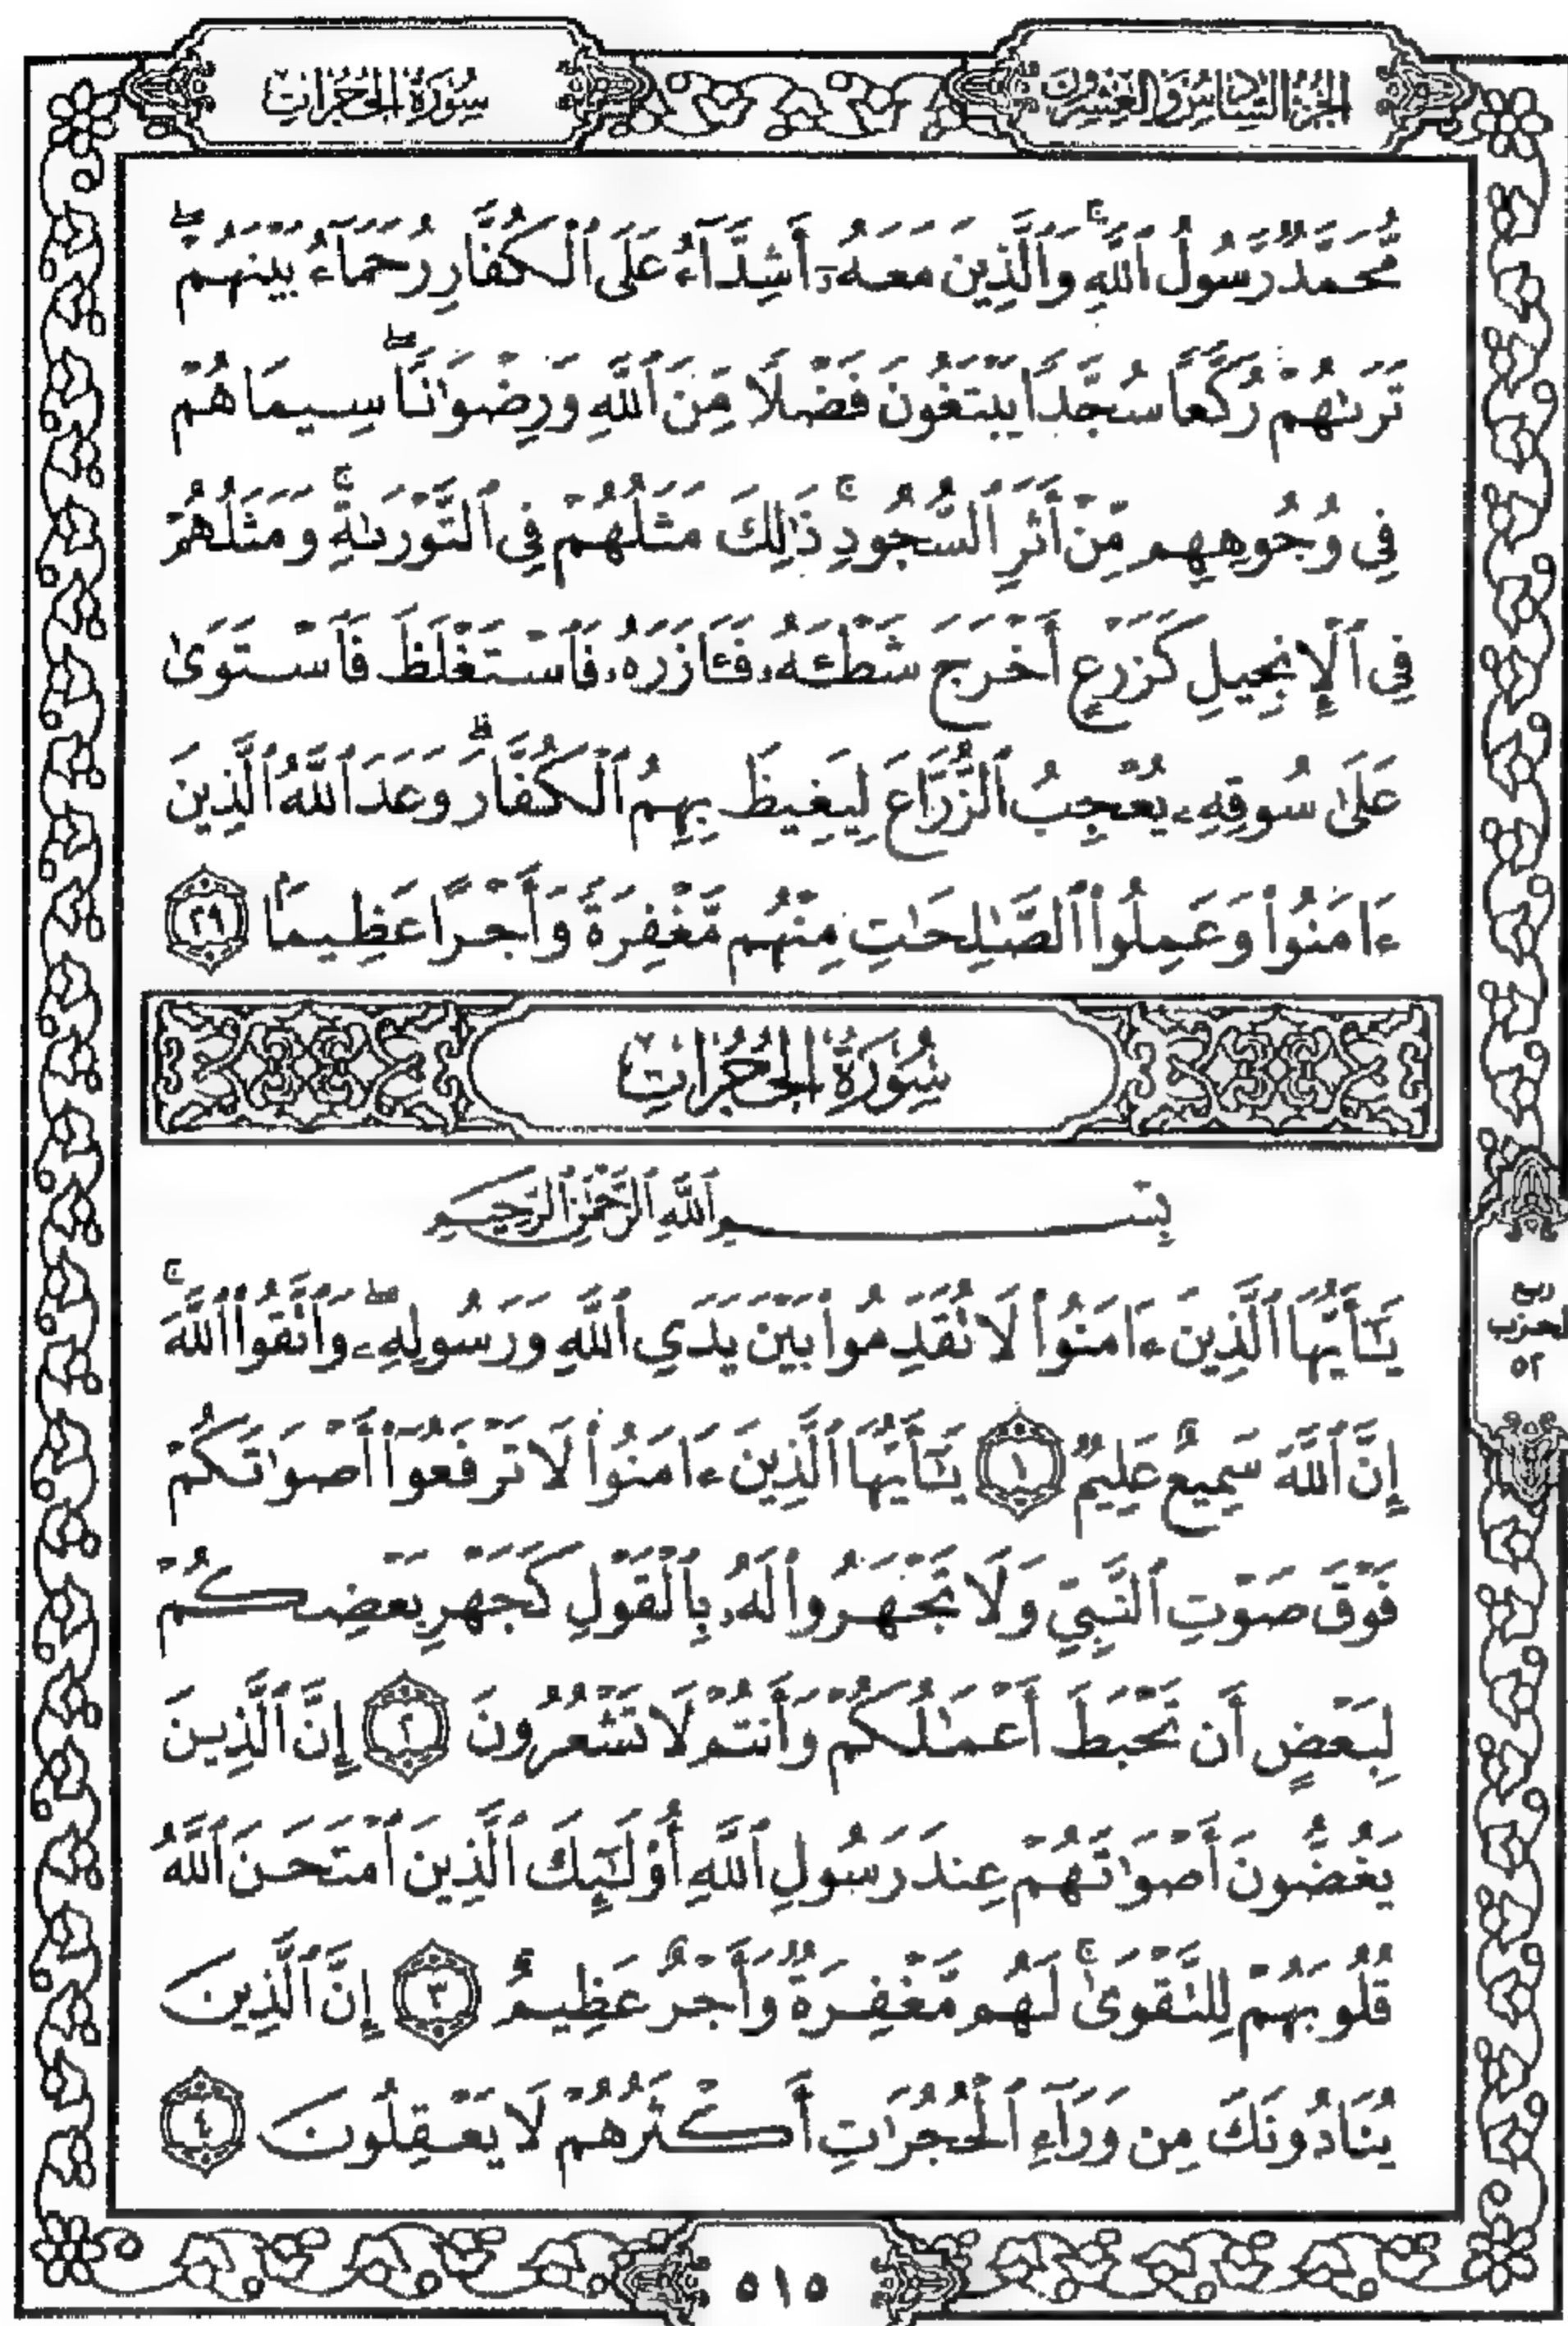 الجزء السادس والعشرون
سورة الحجرات
مُّحَمَّدٌ رَّسُولُ ٱللَّهِ ۚ وَٱلَّذِينَ مَعَهُۥٓ أَشِدَّآءُ عَلَى ٱلْكُفَّارِ رُحَمَآءُ بَيْنَهُمْ ۖ
تَرَىٰهُمْ رُكَّعًا سُجَّدًا يَبْتَغُونَ فَضْلًا مِّنَ ٱللَّهِ وَرِضْوَٰنًا ۖ سِيمَاهُمْ
فِى وُجُوهِهِم مِّنْ أَثَرِ ٱلسُّجُودِ ۚ ذَٰلِكَ مَثَلُهُمْ فِى ٱلتَّوْرَىٰةِ ۚ وَمَثَلُهُمْ
فِى ٱلْإِنجِيلِ كَزَرْعٍ أَخْرَجَ شَطْـَٔهُۥ فَـَٔازَرَهُۥ فَٱسْتَغْلَظَ فَٱسْتَوَىٰ
عَلَىٰ سُوقِهِۦ يُعْجِبُ ٱلزُّرَّاعَ لِيَغِيظَ بِهِمُ ٱلْكُفَّارَ ۗ وَعَدَ ٱللَّهُ ٱلَّذِينَ
ءَامَنُوا۟ وَعَمِلُوا۟ ٱلصَّٰلِحَٰتِ مِنْهُم مَّغْفِرَةً وَأَجْرًا عَظِيمًۢا ٢٩
سُورَةُ الحُجُرَاتِ
بِسْمِ ٱللَّهِ ٱلرَّحْمَٰنِ ٱلرَّحِيمِ
يَـٰٓأَيُّهَا ٱلَّذِينَ ءَامَنُوا۟ لَا تُقَدِّمُوا۟ بَيْنَ يَدَىِ ٱللَّهِ وَرَسُولِهِۦ ۖ وَٱتَّقُوا۟ ٱللَّهَ ۚ
إِنَّ ٱللَّهَ سَمِيعٌ عَلِيمٌ ١ يَـٰٓأَيُّهَا ٱلَّذِينَ ءَامَنُوا۟ لَا تَرْفَعُوٓا۟ أَصْوَٰتَكُمْ
فَوْقَ صَوْتِ ٱلنَّبِىِّ وَلَا تَجْهَرُوا۟ لَهُۥ بِٱلْقَوْلِ كَجَهْرِ بَعْضِكُمْ
لِبَعْضٍ أَن تَحْبَطَ أَعْمَٰلُكُمْ وَأَنتُمْ لَا تَشْعُرُونَ ٢ إِنَّ ٱلَّذِينَ
يَغُضُّونَ أَصْوَٰتَهُمْ عِندَ رَسُولِ ٱللَّهِ أُو۟لَـٰٓئِكَ ٱلَّذِينَ ٱمْتَحَنَ ٱللَّهُ
قُلُوبَهُمْ لِلتَّقْوَىٰ ۚ لَهُم مَّغْفِرَةٌ وَأَجْرٌ عَظِيمٌ ٣ إِنَّ ٱلَّذِينَ
يُنَادُونَكَ مِن وَرَآءِ ٱلْحُجُرَٰتِ أَكْثَرُهُمْ لَا يَعْقِلُونَ ٤
ربع
الحزب
٥٢
٥١٥